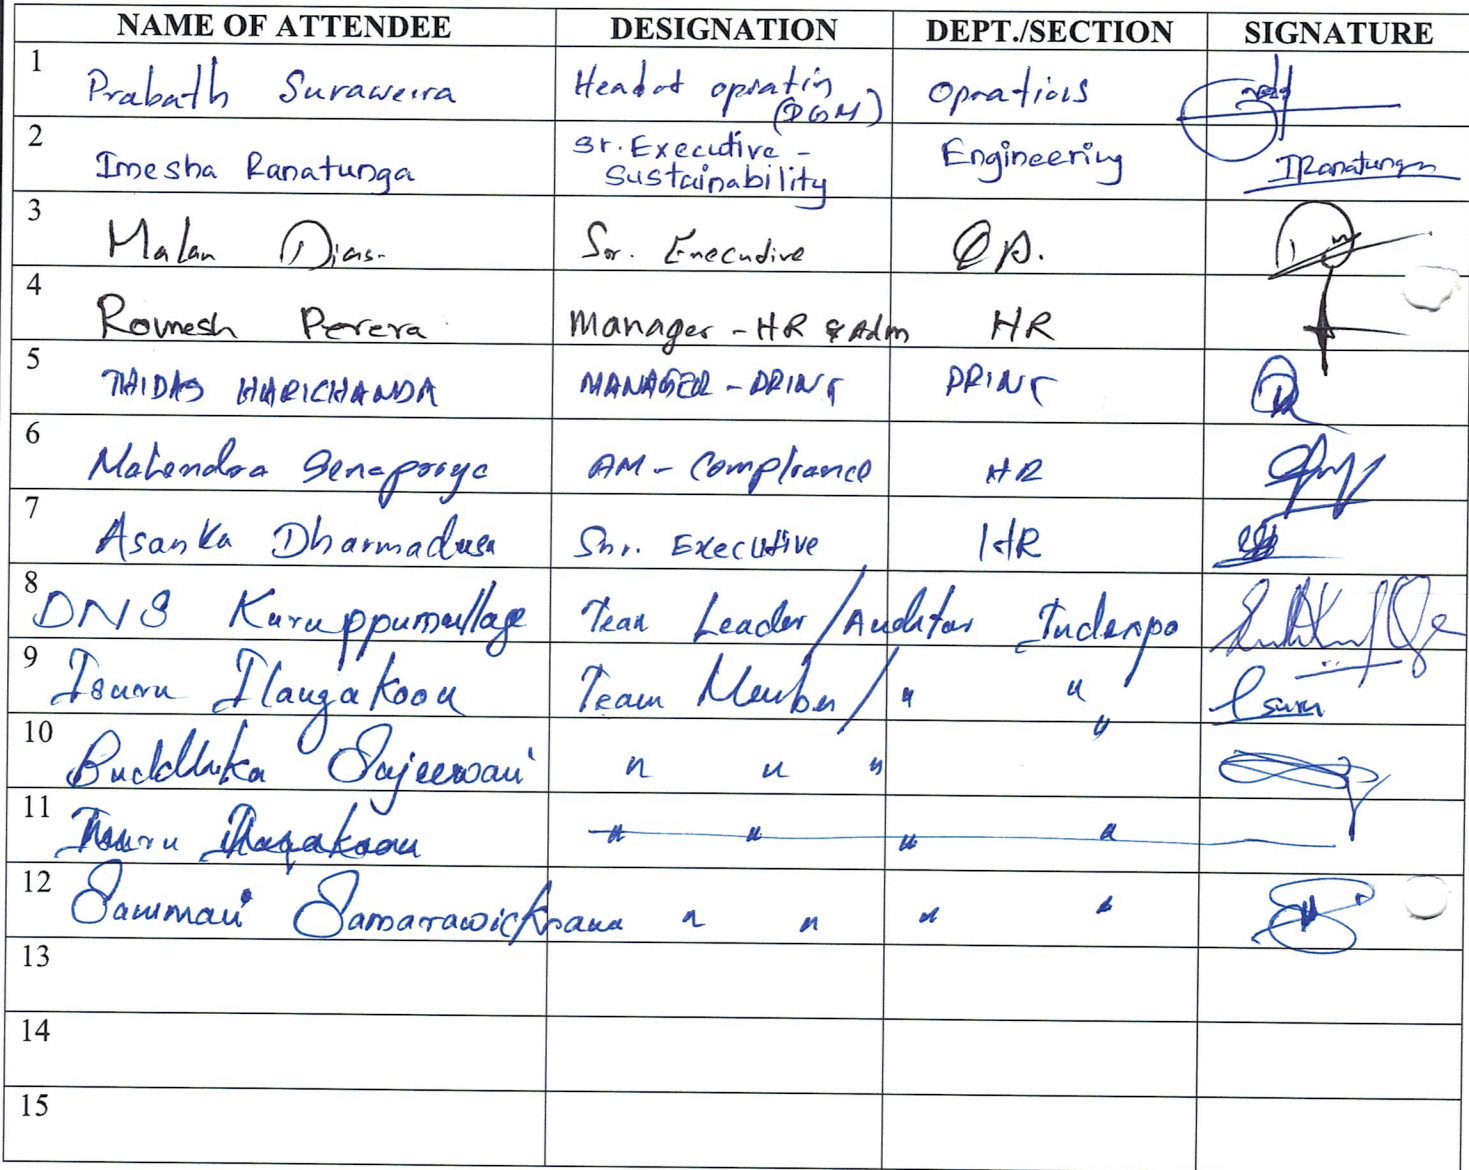 NAME OF ATTENDEE DESIGNATION DEPT./SECTION SIGNATURE
1 Prabath Suraweera Head of opratin (DGM) Oprations
2 Imesha Ranatunga Sr. Executive - Sustainability Engineering IRanatunga
3 Malan Dias. Sr. Executive
4 Romesh Perera Manager - HR & Adm HR
5 THIDAS HARICHANDA MANAGER - PRINT PRINT
6 Mahendra AM - Compliance HR
7 Asanka Dharmadasa Snr. Executive HR
8 DNS Kuruppumullage Team Leader / Auditor Indenpo
9 Isuru Ilangakoon Team Member / " " Isuru
10 Buddhika Sajeewani " " " "
11 Isuru Ilangakoon " " " "
12 Sammani Samarawickrama " " " "
13
14
15